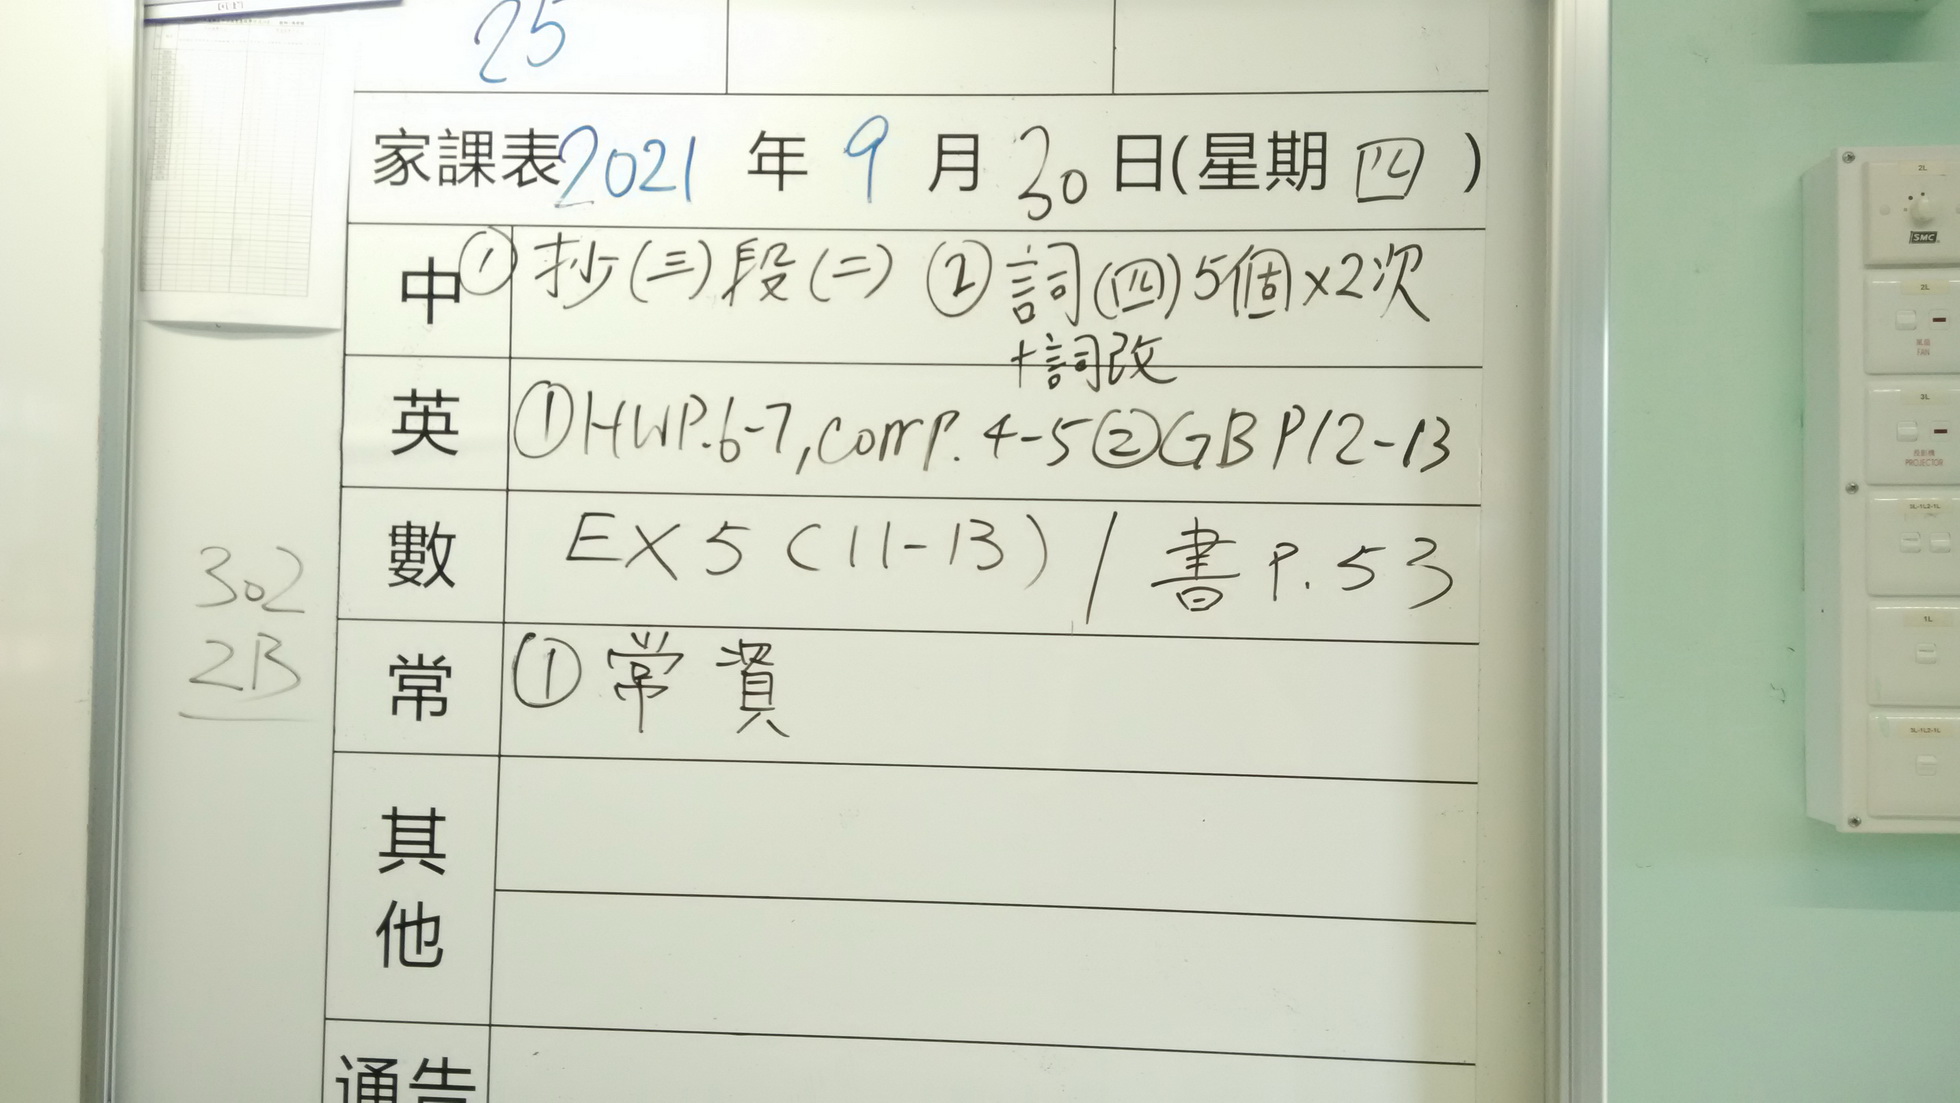 25
家課表 2021 年 9 月 30 日(星期 四 )
中 ① 抄(三)段(二) ② 詞(四)5個×2次
+詞改
英 ①HWP.6-7,comp. 4-5②GBP12-13
數 EX 5 (11-13) / 書 P. 53
302
2B
常 ① 常 資
其
他
通告
2L
SMC
2L
風扇
FAN
3L
投影機
PROJECTOR
1L